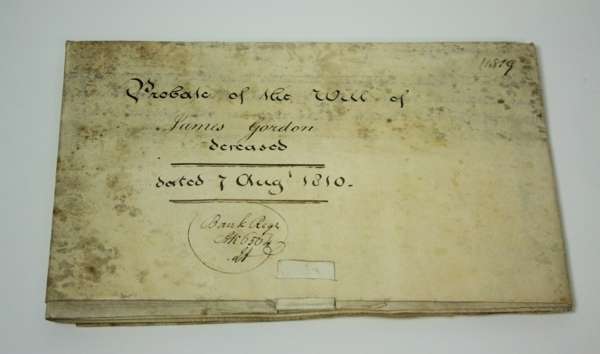 1819
Probate of the Will of
James Gordon
deceased
dated 7 Augt 1810.
Bank Regr